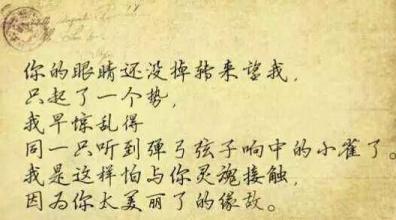 你的眼睛还没掉转来望我，
只起了一个势，
我早惊乱得
同一只听到弹弓弦子响中的小雀了。
我是这样怕与你灵魂接触，
因为你太美丽了的缘故。